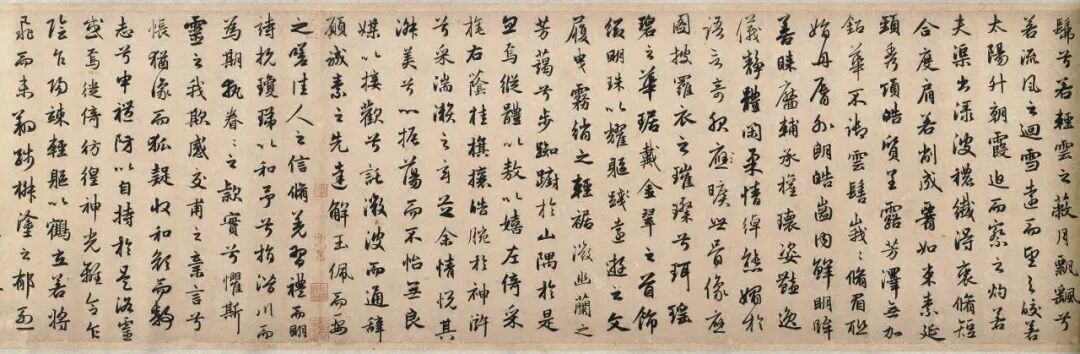 髴兮若輕雲之蔽月飄飖兮
若流風之迴雪遠而望之皎若
太陽升朝霞迫而察之灼若
夫渠出渌波穠纖得衷脩短
合度肩若削成腰如束素延
頸秀項皓質呈露芳澤無加
鉛華不御雲髻峩峩脩眉聯
娟丹脣外朗皓齒内鮮明眸
善睐靨輔承權瓌姿豔逸
儀靜體閑柔情綽態媚於
語言奇服應曠世骨像應
圖披羅衣之璀璨兮珥瑶
碧之華琚戴金翠之首飾
綴明珠以耀軀踐遠遊之文
履曳霧綃之輕裾微幽蘭之
芳藹兮步踟躕於山隅於是
忽焉縱體以敖以嬉左倚采
旄右蔭桂旗攘皓腕於神滸
兮采湍瀨之玄芝余情悦其
淑美兮心振蕩而不怡無良
媒以接歡兮託微波而通辭
願誠素之先達解玉佩而要
之嗟佳人之信脩羌習禮而明
詩抗瓊珶以和予兮指潛川而
為期執眷眷之款實兮懼斯
靈之我欺感交甫之棄言兮
悵猶豫而狐疑收和顔而靜
志兮申禮防以自持於是洛靈
感焉徙倚彷徨神光離合乍
陰乍陽竦輕軀以鶴立若將
飛而未翔踐椒塗之郁烈